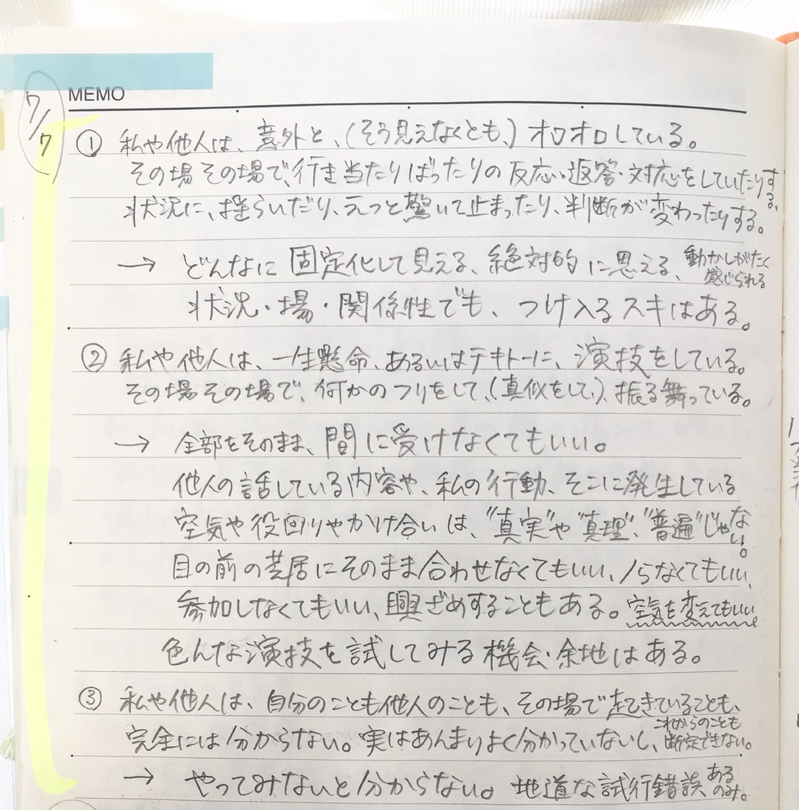 7/7
MEMO
① 私や他人は、意外と、(そう見えなくとも、) オロオロしている。
その場その場で、行き当たりばったりの反応・返答・対応をしていたりする。
状況に、揺らいだり、えっと驚いて止まったり、判断が変わったりする。
→ どんなに固定化して見える、絶対的に思える、動かしがたく感じられる
状況・場・関係性でも、つけ入るスキはある。
② 私や他人は、一生懸命、あるいはテキトーに、演技をしている。
その場その場で、何かのフリをして、(真似をして、) 振る舞っている。
→ 全部をそのまま、間に受けなくてもいい。
他人の話している内容や、私の行動、そこに発生している
空気や役回りやかけ合いは、"真実"や"真理"、"普遍"じゃない。
目の前の芝居にそのまま合わせなくてもいい、ノらなくてもいい、
参加しなくてもいい、興ざめすることもある。空気を変えてもいい
色んな演技を試してみる機会・余地はある。
③ 私や他人は、自分のことも他人のことも、その場で起きていることも、
完全には分からない。実はあんまりよく分かっていないし、これからのことも断定できない。
→ やってみないと分からない。地道な試行錯誤あるのみ。